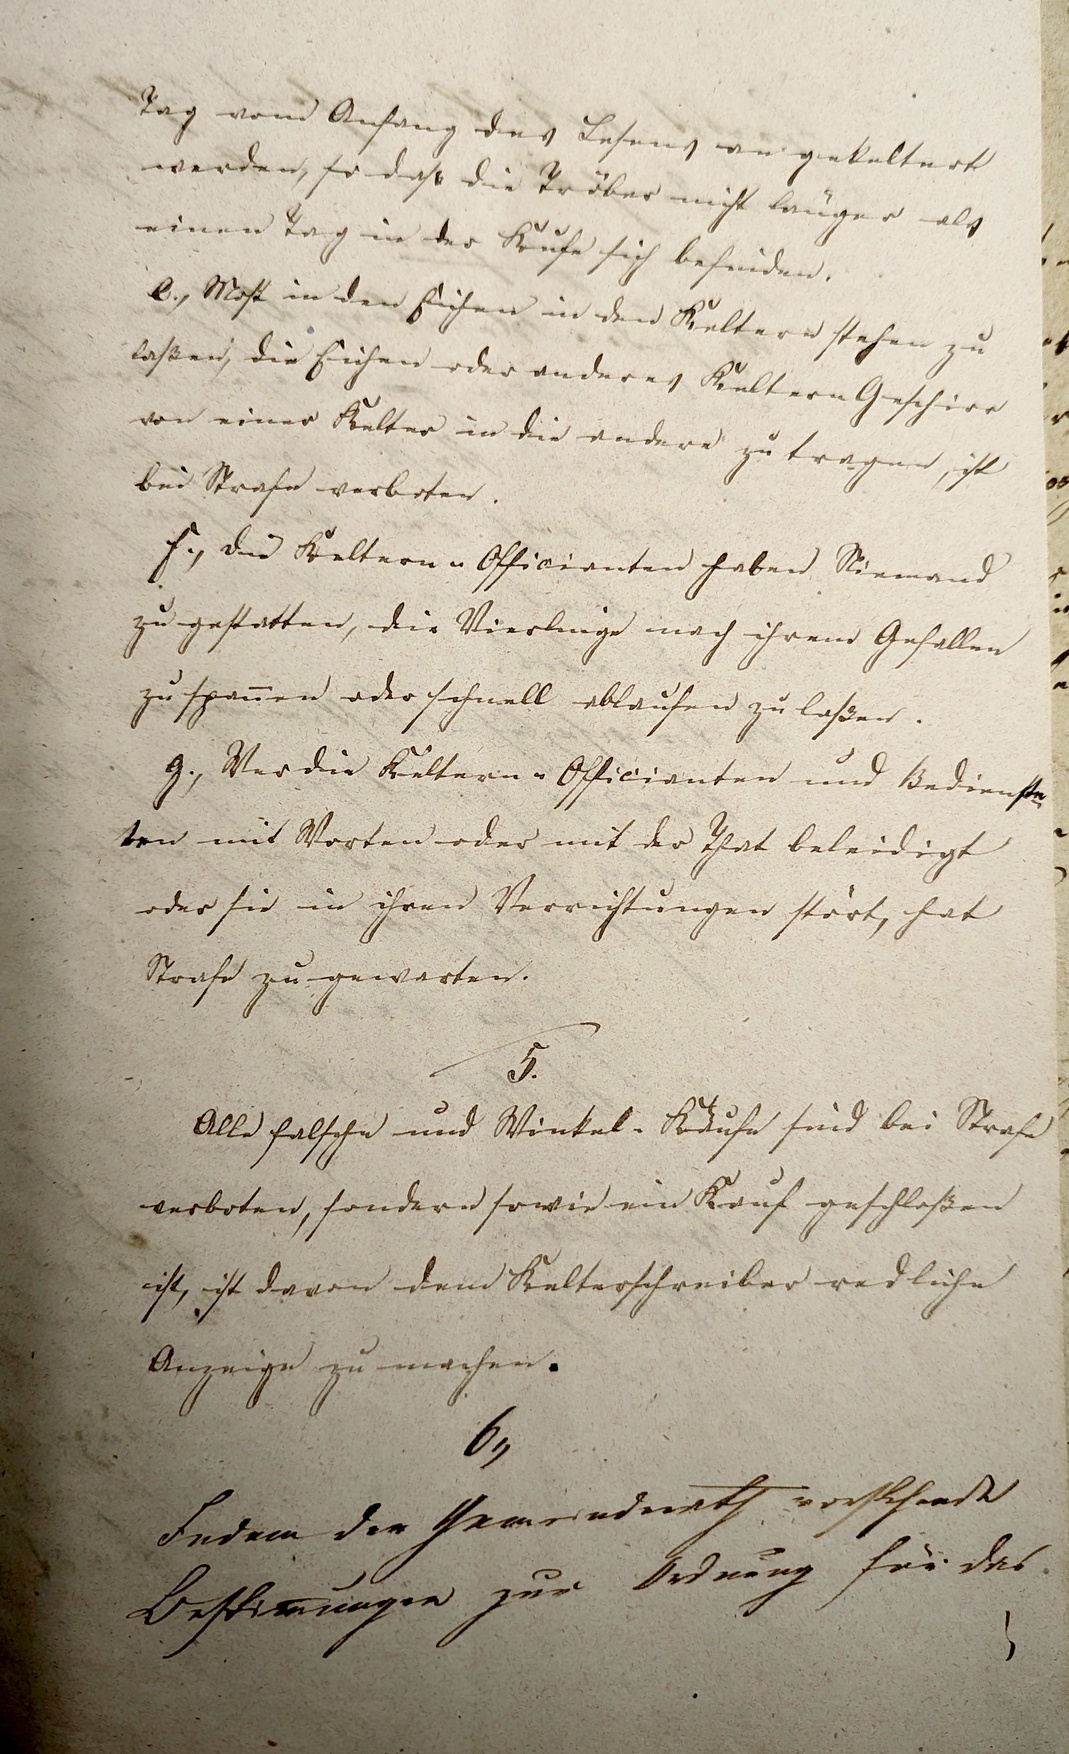 Tag vom Anfang des Lesens an gekeltert
werden, so daß die Tröber nicht länger als
einen Tag in der Kufe sich befinden.
e., Most in den Eichen in den Keltern stehen zu
laßen, die Eichen oder anderes Keltern Geschirr
von einer Kelter in die andere zu tragen, ist
bei Strafe verboten.
f., die Keltern-Officianten haben Niemand
zu gestatten, die Vierlinge nach ihrem Gefallen
zu span̄en oder schnell ablaufen zu laßen.
g., Wer die Keltern-Officianten und Bedienste
ten mit Worten oder mit der That beleidigt
oder sie in ihren Verrichtungen stört, hat
Strafe zu gewarten.
5.
Alle falsche und Winkel-Käufe sind bei Strafe
verboten, sondern sowie ein Kauf geschloßen
ist, ist davon dem Kelterschreiber redliche
Anzeige zu machen.
6,,
Indem der Gemeinderath vorstehende
Bestim̄ungen zur Ordnung für das